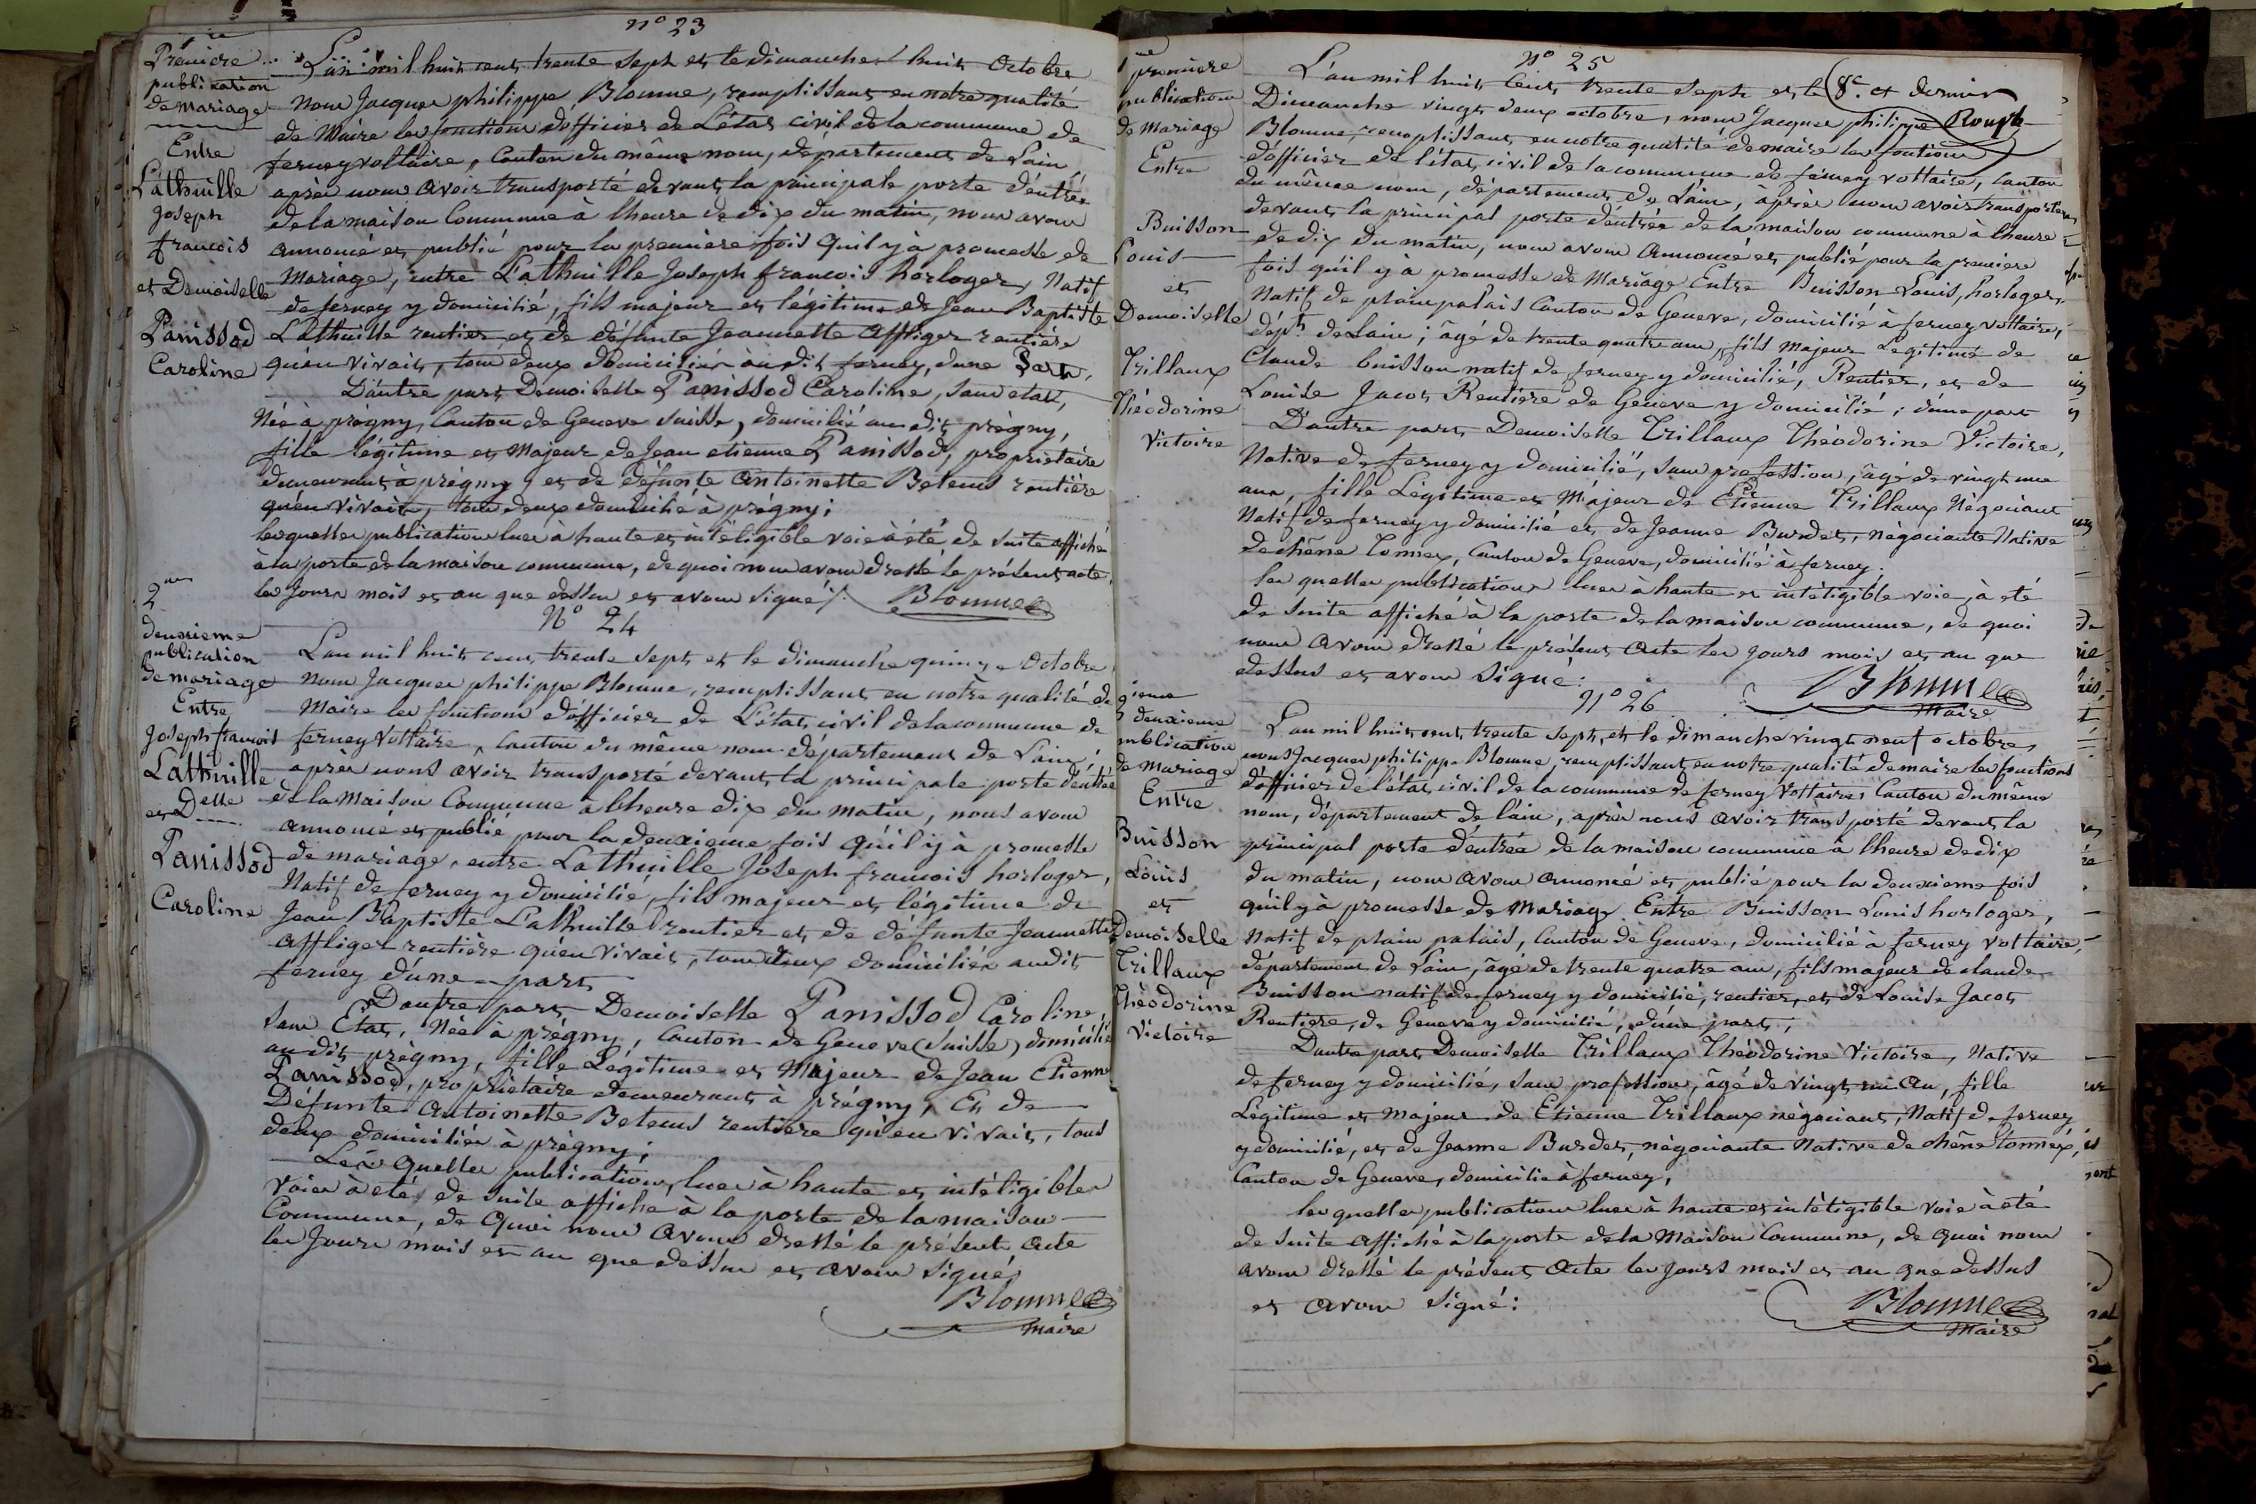 n° 23
1re
Première
publication
de mariage
Entre
Lathuille
Joseph
francois
et Demoiselle
Panissod
Caroline
L'an mil huit cent trente sept et le dimanche huit Octobre
Nous Jacques philippe Blonme, remplissant en notre qualité
de Maire les fonctions d'officier de L'état civil de la commune de
ferney voltaire, Canton du même nom, département de Lain
après nous avoir transporté devant la principale porte d'entrée
de la maison Commune à lheure de dix du matin, nous avons
annoncé et publié pour la premiere fois quil y à promesse de
Mariage, entre Lathuille Joseph francois horloger, Natif
de ferney y domicilié, fils majeur et légitime de Jean Baptiste
Lathuille rentier et de défunte Jeannette Affliger rentière
qu'en vivait, tous deux domiciliés au dit ferney, d'une Part,
D'autre part Demoiselle Panissod Caroline, sans etat,
Née à prégny, Canton de Geneve suisse, domicilié au dit prégny,
fille légitime et Majeur de Jean etienne Panissod, propriétaire
demeurant à prégny, et de défunte Antoinette Betems rentière
qu'en vivait, tous deux domicilié à prégny;
lesquelles publications lues à haute et intéligible voie à été de suite affiché
à la porte de la maison commune, de quoi nous avons dressé le présent acte,
les Jours mois et an que dessus et avons signé/. Blonme
n° 24
2me
deuxieme
publication
de mariage
Entre
Joseph francois
Lathuille
et Delle
Panissod
Caroline
L'an mil huit cent trente sept et le dimanche quinze Octobre
Nous Jacques philippe Blonme, remplissant en notre qualité de
Maire les fonctions d'officier de L'état civil de la commune de
ferney Voltaire, Canton du même nom département de Lain,
après nous avoir transporté devant la principale porte d'entrée
de la Maison Commune à lheure dix du matin, nous avons
annoncé et publié pour la deuxieme fois qu'il y à promesse
de mariage, entre Lathuille Joseph francois horloger,
Natif de ferney y domicilié, fils majeur et légitime de
Jean Baptiste Lathuille rentier et de défunte Jeannette
Affliger rentière qu'en vivait, tous deux domiciliés audit
ferney d'une part
Dautre part Demoiselle Panissod Caroline,
sans Etat, Née à prégny, Canton de Geneve (Suisse) domicilié
au dit prégny, fille Légitime et Majeur de Jean Etienne
Panissod, propriétaire demeurant à prégny, Et de
Défunte Antoinette Betems rentière qu'en vivait, tous
deux domiciliés à prégny;
Les quelles publications, lues à haute et intéligibles
voies à été de suite affiché à la porte de la maison
Commune, de Quoi nous avons dressé le présent acte
les Jours mois et an que dessus et avons signé,
Blonme
Maire
n° 25
8e et dernier
Rouph
premiere
publication
de Mariage
Entre
Buisson
Louis
et
Demoiselle
Trillaux
Théodorine
Victoire
L'an mil huit Cent trente sept et le
Dimanche vingt deux octobre, nous Jacques philippe
Blonme, remplissant en notre qualité de maire les fontions
d'officier de l'état civil de la commune de ferney voltaire, Canton
du même nom, département de Lain, après nous avoir transporté
devant la principal porte d'entrée de la maison commune à lheure
de dix du matin, nous avons annoncé et publié pour la premiere
fois qu'il y à promesse de Mariage Entre Buisson Louis, horloger,
Natif de plainpalais Canton de Geneve, domicilié à ferney voltaire,
dépt de Lain; âgé de trente quatre ans, fils Majeur Légitime de
Claude buisson natif de ferney y domicilié, Rentier, et de
Louise Jacot Rentiere de Geneve y domicilié; d'une part
D'autre part, Demoiselle Trillaux Théodorine Victoire,
Native de ferney y domicilié, sans profession, âgé de vingt une
ans, fille Légitime et Májeur de Etienne Trillaux Négociant
Natif de ferney y domicilié et de Jeanne Burdet, négociante Native
de chêne Tonnex, Canton de Geneve, domicilié à ferney.
les quelles publications lues à haute et intéligible voie, à eté
de suite affiché à la porte de la maison commune, de quoi
nous avons dressé le présent Acte les Jours mois et an que
dessus et avons Signé:
Blonme
Maire
n° 26
deuxieme
publication
de Mariage
Entre
Buisson
Loüis
et
Demoiselle
Trillaux
Théodorine
Victoire
L'an mil huit cent trente sept, et le dimanche vingt neuf octobre,
nous Jacques philippe Blonme, remplissant en notre qualité de maire les fonctions
d'officier de l'état civil de la commune de ferney Voltaire, Canton du même
nom, département de l'ain, après nous avoir transporté devant la
principal porte d'entrée de la maison commune à lheure de dix
du matin, nous avons annoncé et publié pour la deuxieme fois
qu'il y à promesse de Mariage Entre Buisson Louis horloger,
Natif de plain palais, Canton de Geneve, domicilié à ferney voltaire,
département de Lain, âgé de trente quatre ans, fils majeur de claude
Buisson natif de ferney y domicilié, rentier, et de Louise Jacot
Rentiere, de Geneve y domicilié, d'une part,
Dautre part Demoiselle Trillaux Théodorine Victoire, Native
de ferney y domicilié, sans profession, âgé de vingt un an, fille
Légitime et majeur de Etienne Trillaux négociant, Natif de ferney
y domicilié, et de Jeanne Burdet, négociante Native de chêne tonnex,
Canton de Geneve, domicilié à ferney,
les quelles publications lues à haute et intéligible voie à été
de suite affiché à la porte de la Maison Commune, de quoi nous
avons dressé le présent acte les jours mois et an que dessus
et avons signé:
Blonme
Maire